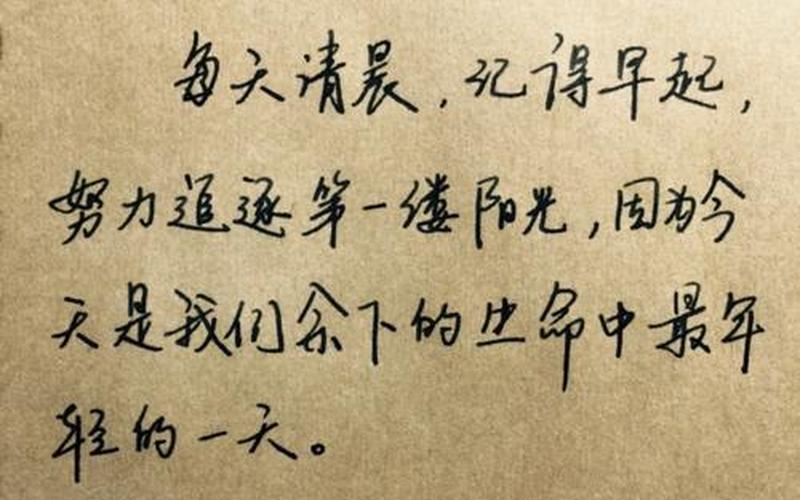 每天清晨，记得早起，
努力追逐第一缕阳光，因为今
天是我们余下的生命中最年
轻的一天。